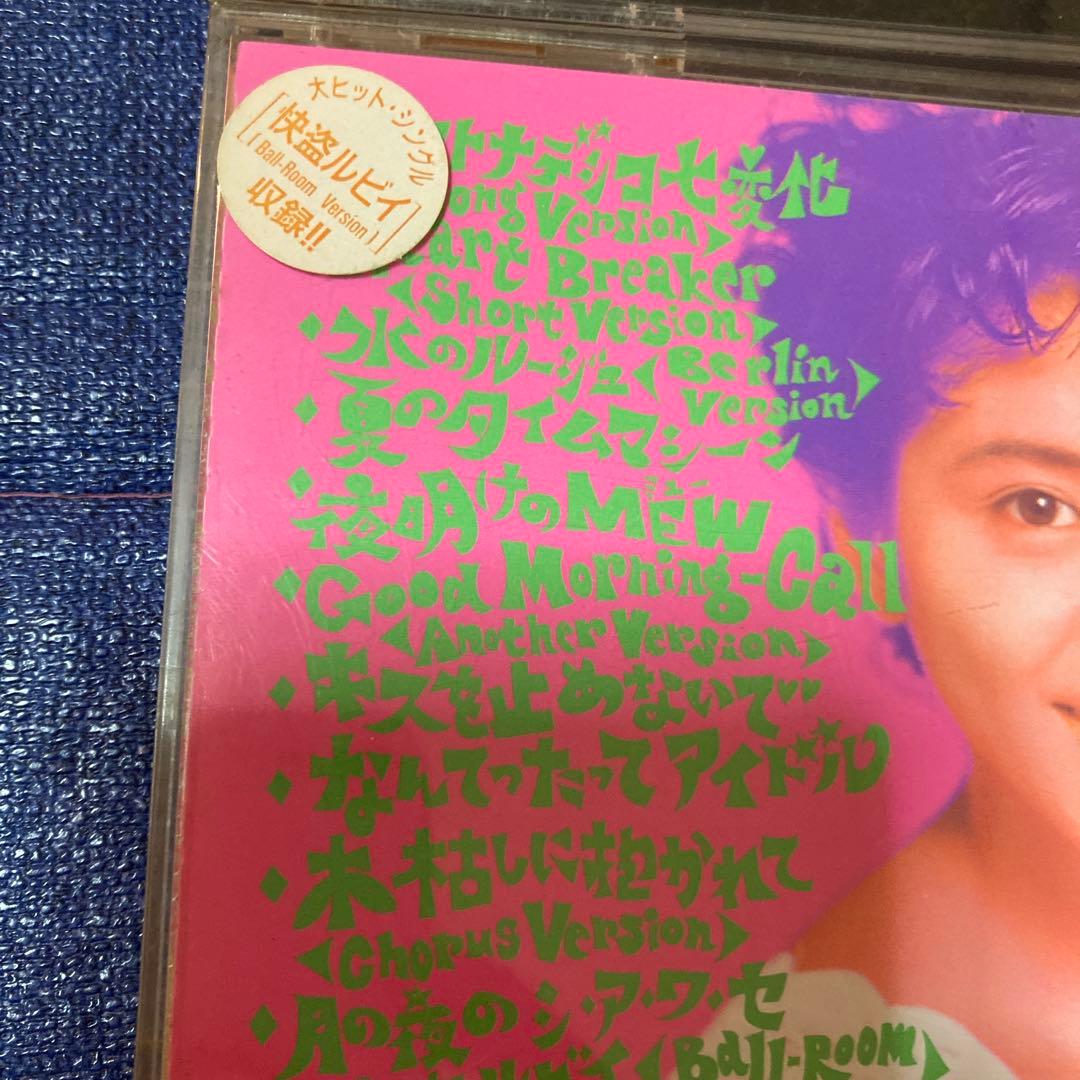 大ヒット・シングル
快盗ルビイ
［Ball-Room Version］
収録!!
トナデシコ七変化
ong Version》
eart Breaker
《Short Version》
◆水のルージュ《Berlin Version》
◆夏のタイムマシーン
◆夜明けのMEW
ミュー
◆Good Morning-Call
《Another Version》
◆キスを止めないで
◆なんてったってアイドル
◆木枯しに抱かれて
《Chorus Version》
◆月の夜のシ・ア・ワ・セ
ルビイ《Ball-Room